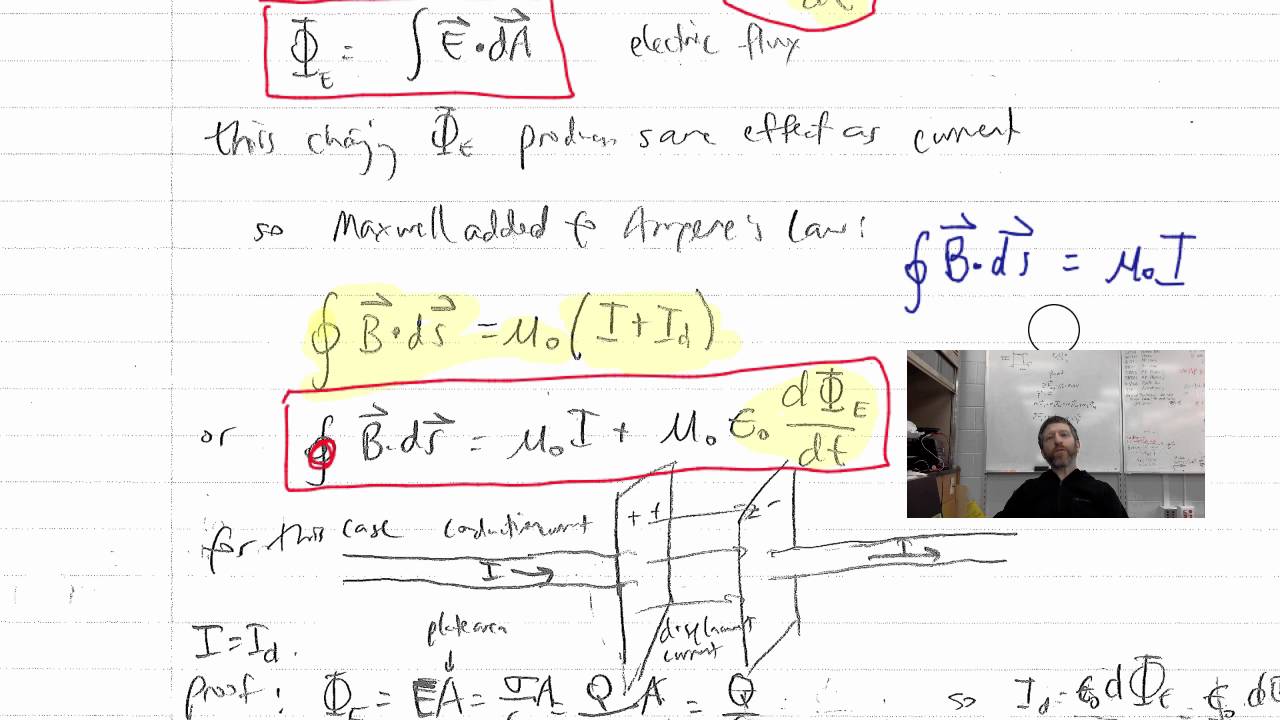 Φ_E = ∫ E⃗ · dA⃗ electric flux
this changing Φ_E produces same effect as current
so Maxwell added to Ampere's Law: ∮ B⃗ · ds⃗ = μ₀I
∮ B⃗ · ds⃗ = μ₀(I + I_d)
or ∮ B⃗ · ds⃗ = μ₀I + μ₀ε₀ dΦ_E/dt
+ + - -
for this case conduction current
I → I →
I = I_d.
plate area
displacement
current
Proof: Φ_E = EA = σA = Q A = Q so I_d = ε₀ dΦ_E